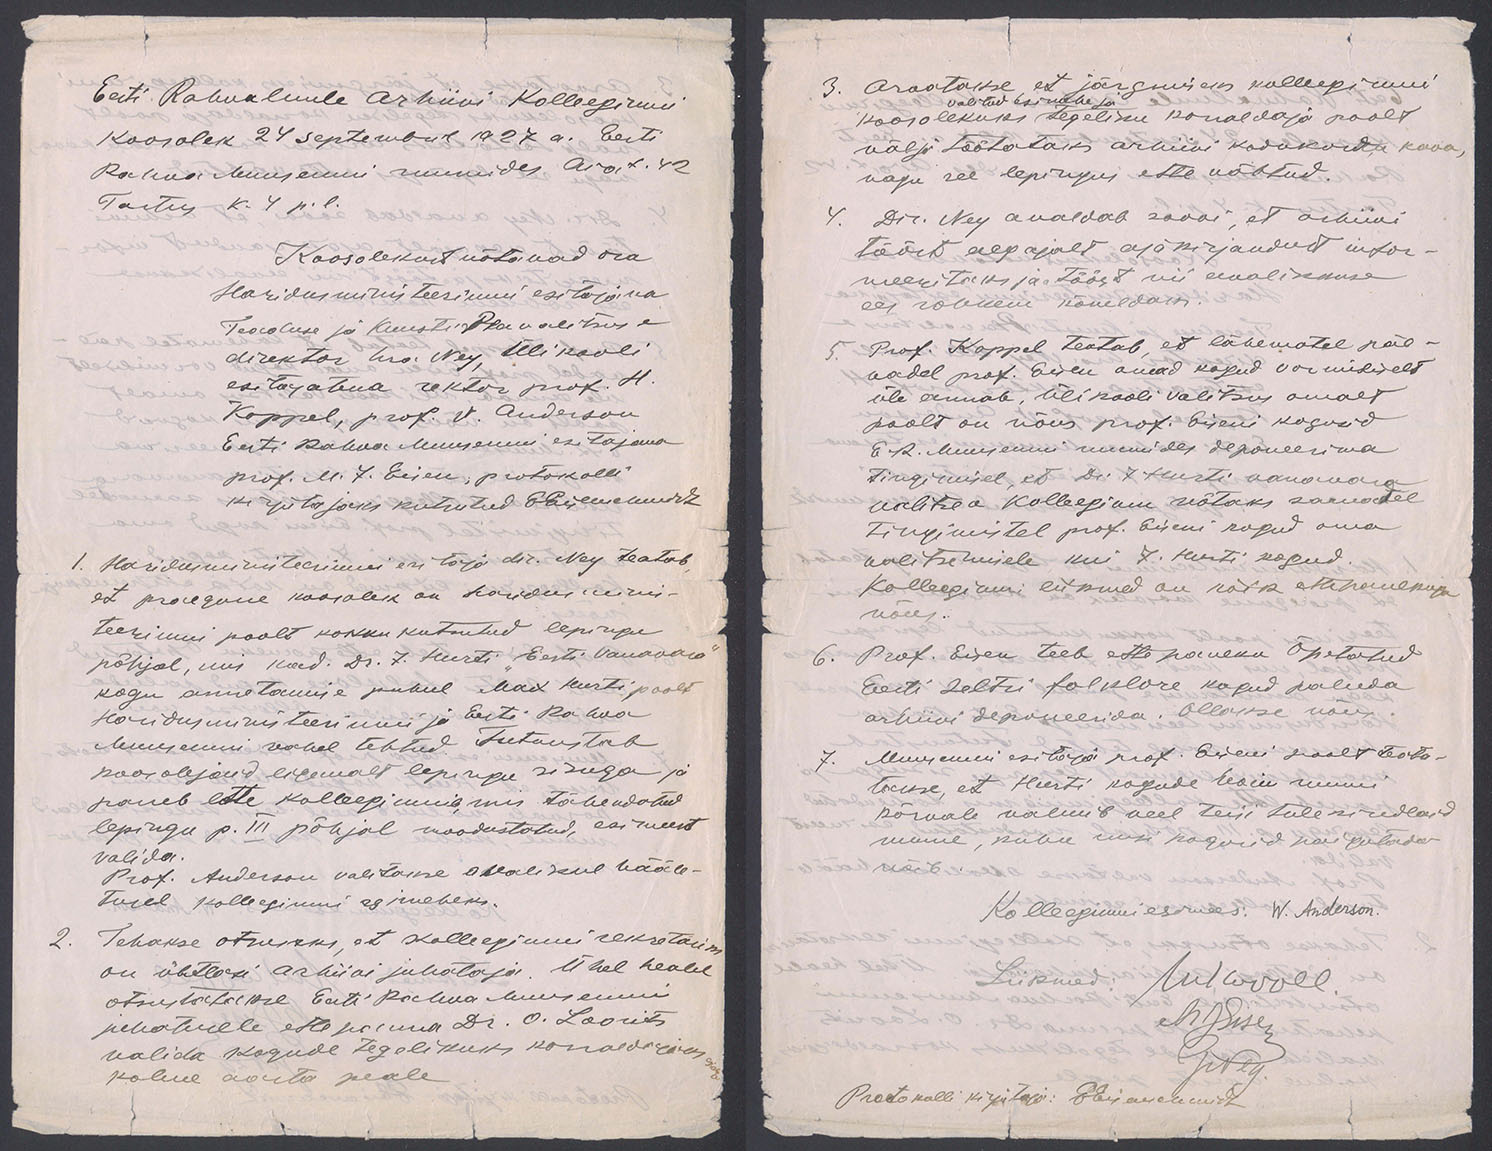 Eesti Rahvaluule Arhiivi Kolleegiumi
koosolek 24 septembril 1927 a. Eesti
Rahva Muuseumi ruumides Aia t. 42
Tartus k. 4 p.l.
Koosolekust võtavad osa
Haridusministeeriumi esitajana
Teaduse ja Kunsti Peavalitsuse
direktor hra Ney, Ülikooli
esitajatena rektor prof. H.
Koppel, prof. V. Anderson
Eesti Rahva Muuseumi esitajana
prof. M. J. Eisen, protokolli
kirjutajaks kutsutud
1. Haridusministeeriumi esitaja dir. Ney teatab,
et praegune koosolek on haridusminis-
teeriumi poolt kokku kutsutud lepingu
põhjal, mis kad. Dr. J. Hurti „Eesti Vanavara"
kogu annetamise puhul Max Hurti poolt
Haridusministeeriumi ja Eesti Rahva
Muuseumi vahel tehtud. Tutvustab
koosolejaid ligemalt lepingu sisuga ja
paneb ette kolleegiumis, mis tähendatud
lepingu p. III põhjal moodustatud, esimeest
valida.
Prof. Anderson valitakse avalikul hääle-
tusel kolleegiumi esimeheks.
2. Tehakse otsuseks, et kolleegiumi sekretäriks
on ühtlasi arhiivi juhataja. Ühel healel
otsustatakse Eesti Rahva Muuseumi
juhatusele ette panna Dr. O. Loorits
valida kogude tegelikuks korraldajaks
kolme aasta peale
3. Arvatakse, et järgmiseks kolleegiumi
valitud esimehe ja
koosolekuks tegeliku korraldaja poolt
välja töötataks arhiivi kodukorra kava,
nagu see lepingus ette nähtud.
4. Dir. Ney avaldab soovi, et arhiivi
tööst aegajalt ajakirjandust infor-
meeritaks ja tööst nii avalikkuse
ees rohkem kõneldaks.
5. Prof. Koppel teatab, et lähematel päe-
vadel prof. Eisen omad kogud vormiliselt
üle annab, Ülikooli Valitsus omalt
poolt on nõus prof. Eiseni kogusid
E.R. Muuseumi ruumides deponeerima
tingimisel, et Dr. J. Hurti vanavara
valitsev Kolleegium võtaks samadel
tingimistel prof. Eiseni kogud oma
valitsemisele kui J. Hurti kogud.
Kolleegiumi liikmed on kõik ettepanekuga
nõus.
6. Prof. Eisen teeb ettepaneku Õpetatud
Eesti Seltsi folklore kogud paluda
arhiivi deponeerida. Ollakse nõus.
7. Muuseumi esitaja prof. Eiseni poolt teata-
takse, et Hurti kogude hoiu ruumi
kõrvale valmib veel teisi tulekindlaid
ruume, kuhu uusi kogusid paigutada
võib.
Kolleegiumi esimees: W. Anderson.
Liikmed:
M J Eisen
G Ney.
Protokolli kirjutaja: